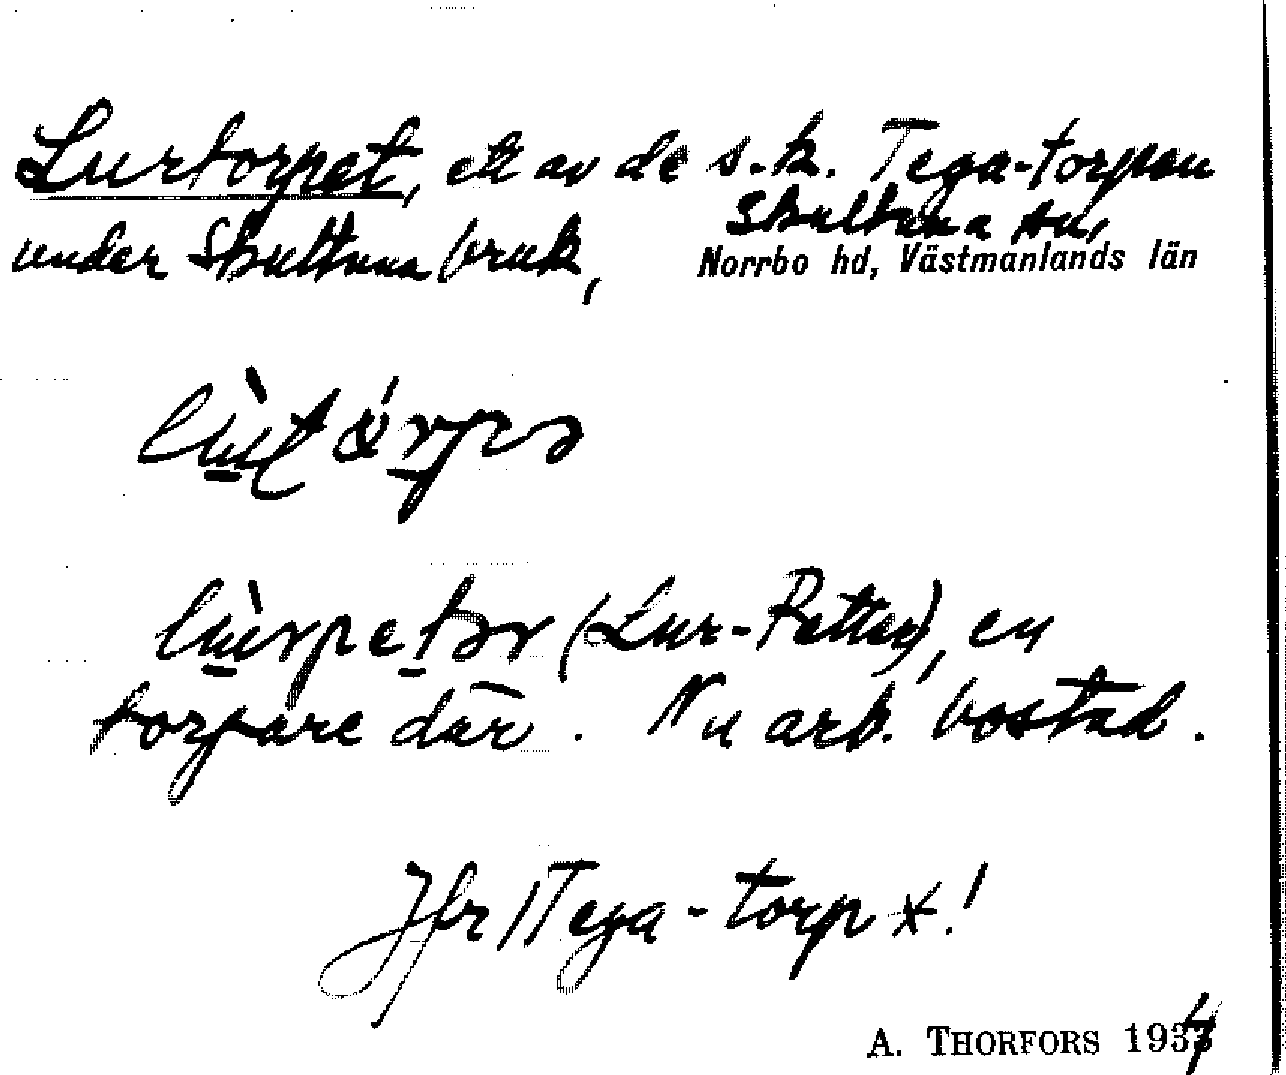 Lurtorpet, ett av de s.k. Tega-torpen
under Skultuna bruk, Skultuna sn,
Norrbo hd, Västmanlands län
(Lur-Petter), en
torpare där. Nu arb. bostad.
Jfr Tega-torp x!
A. THORFORS 1934